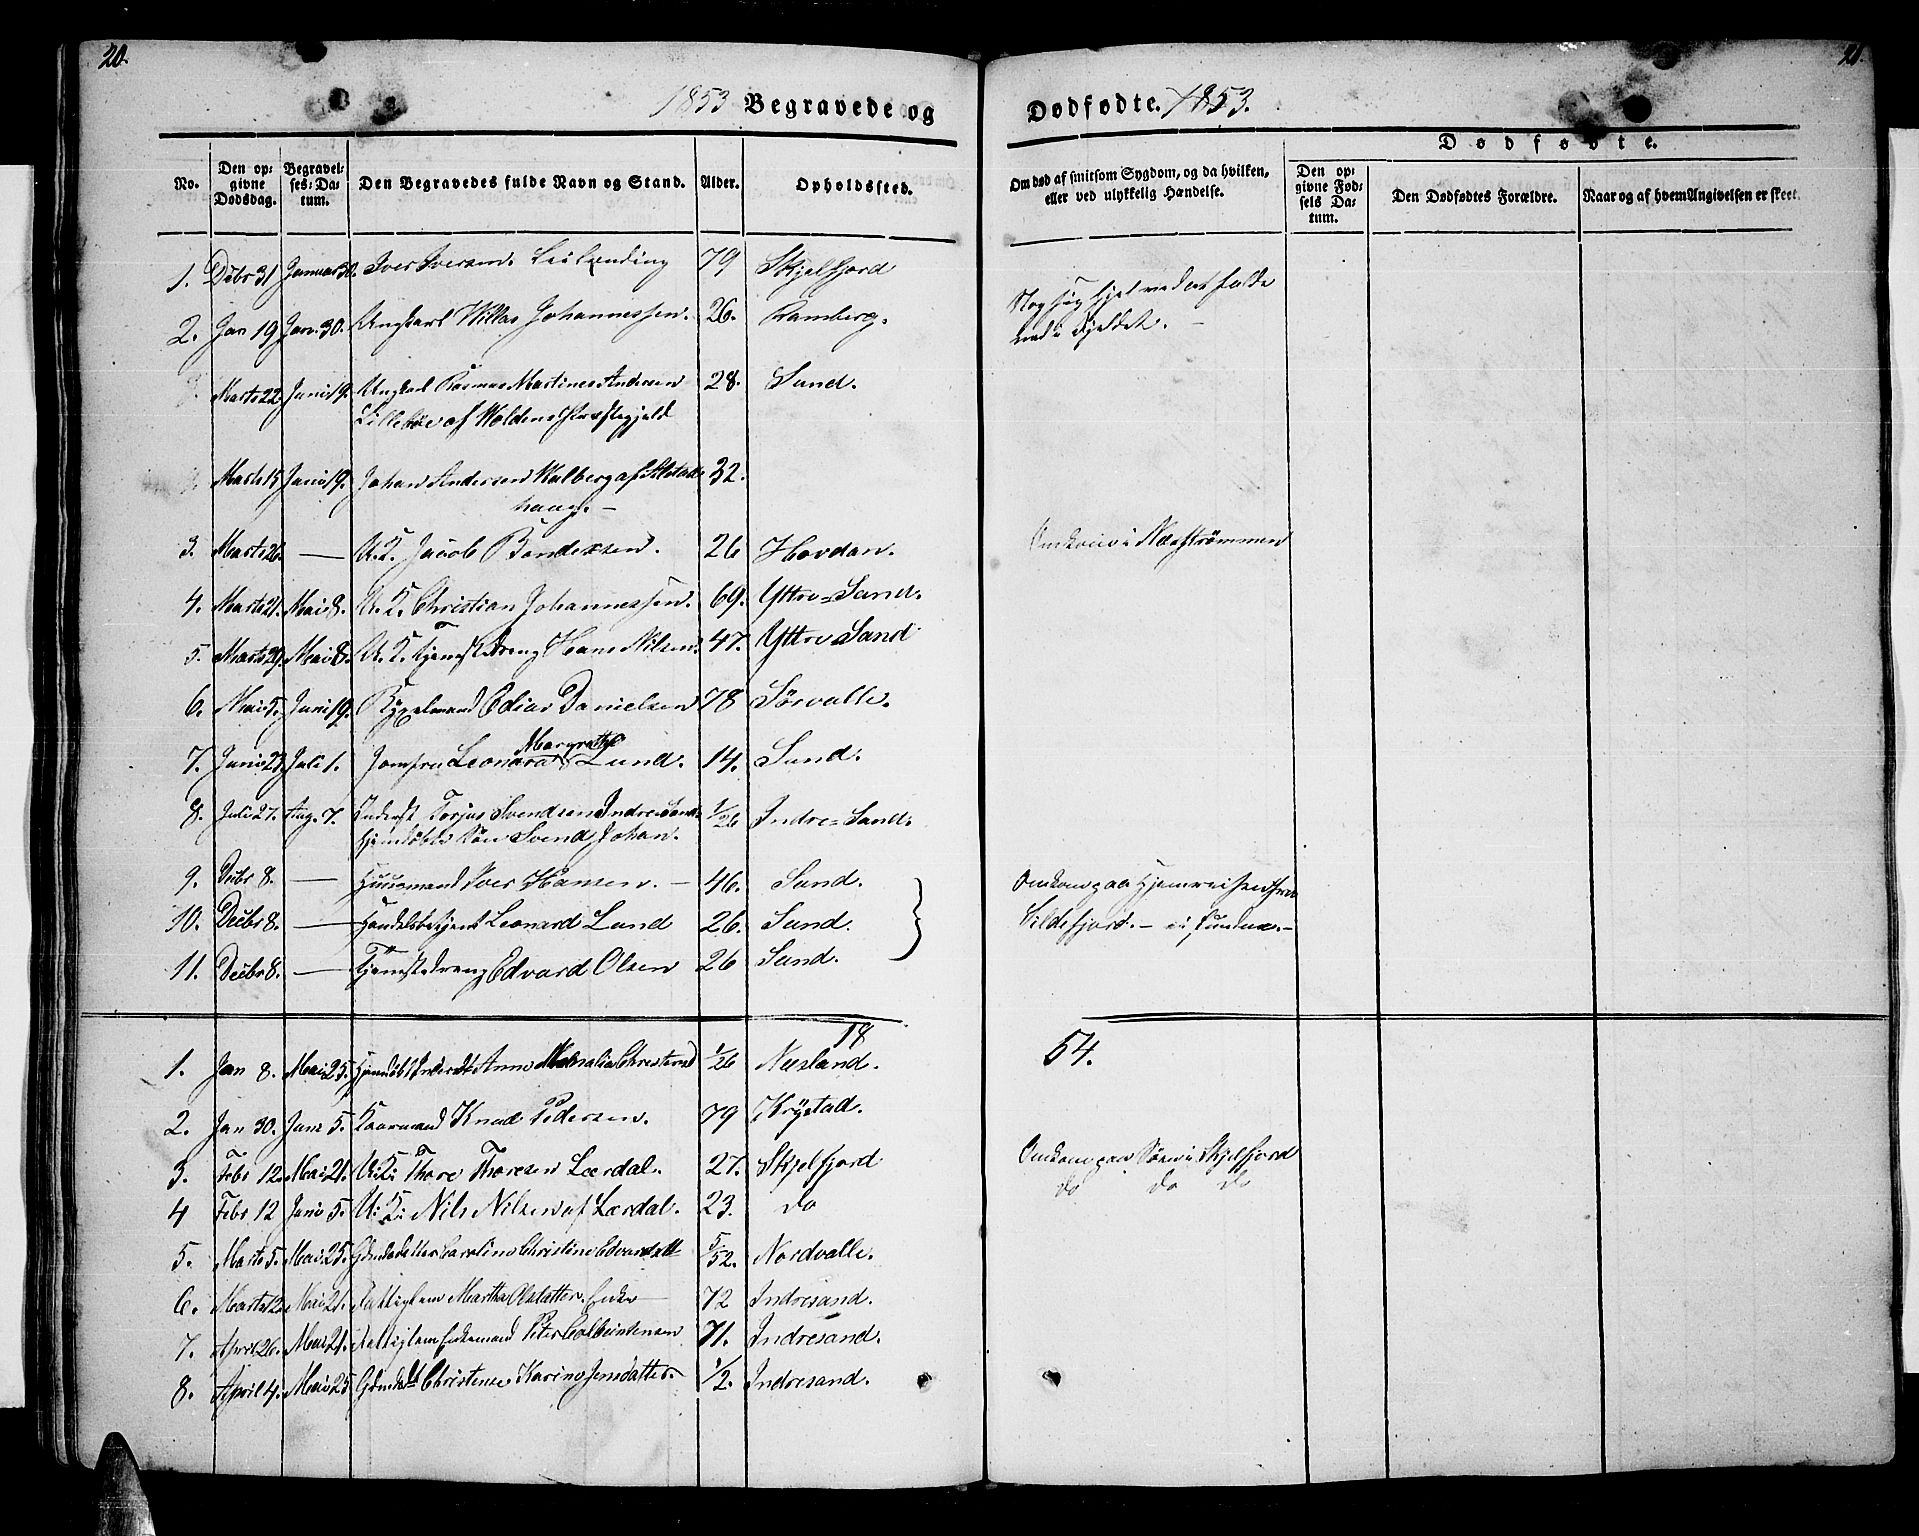 20.
21.
1853 Begravede og Dødfødte. 1853.
Dødfødte.
No.
Den opgivne Dødsdag.
Begravelses-Datum.
Den Begravedes fulde Navn og Stand.
Alder.
Opholdssted.
Om død af smitsom Sygdom, og da hvilken, eller ved ulykkelig Hændelse.
Den opgivne Fødsels Datum.
Den Dødfødtes Forældre.
Naar og af hvem Angivelsen er skeet.
1. Decbr 31 Januar 30. Iver Iversen. Leilænding 79 Skjelfjord
2. Jan 19 Jan. 30. Ungkarl Willas Johannessen. 26. Ramberg. Slog sig ihjel ved at falde
ned i Fjeldet. –
Marts 22 Juni 19. Ungkarl Rasmus Martines Andersen 28. Sund.
Lillebøe af Woldens Præstegjeld
Marts 15 Juni 19. Johan Andersen Walberg af Alstad- 32.
haug. –
3. Marts 26. — U. K. Jacob Bendixsen. 26 Hovdan. Omkom i Næsstrømmen
4. Marts 21. Mai 8. U. K. Christian Johannessen. 69. Yttre-Sand.
5. Marts 29. Mai 8. U. K. Tjenestedreng Hans Nilsen. 47. Yttre Sand
6. Mai 5. Juni 19. Danielsen 78 Sørvalle.
7. Juni 21. Juli 1. Jomfru Leonora Margrethe Lund. 14. Sund.
8. Juli 27. Aug. 7. Inderst Torjus Svendsen Indresand 1/26 Indre-Sand.
Hjemdøbte Søn Svend Johan.
9. Decbr 8. — Huusmand Iver Hansen. – 46. Sund. Omkom paa Hjemreisen fra
10. Decbr 8. — Handelsbetjent Leonard Lund 26. Sund. Sildefjord. – ei funden. –
11. Decbr 8. — Tjenestedreng Edvard Olsen 26 Sund.
18 54.
1. Jan 8. Mai 25. Hjemdøbt Anne Christensd 1/26 Næsland.
2. Jan 30. Juni 5. Kaarmand Knud Pedersen. 79 Krystad.
3. Febr 12. Mai 21. U: K: Thore Thoresen Lærdal. 27. Skjelfjord Omkom paa Søen i Skjelfjord
4 Febr 12 Juni 5. U: K: Nils Nilsen af Lærdal. 23. do do do do
5. Marts 5. Mai 25. Gbmdsdatter Caroline Christine Edvardsdtt 5/52. Nordvalle.
6. Marts 12. Mai 21. Fattiglem Martha Olsdatter. Enke 72 Indresand.
7. April 20. Mai 21. Fattiglem Enkemand Peter 71. Indresand.
8. April 4. Mai 25 Christense Karine Jensdatter. 1/2. Indresand.